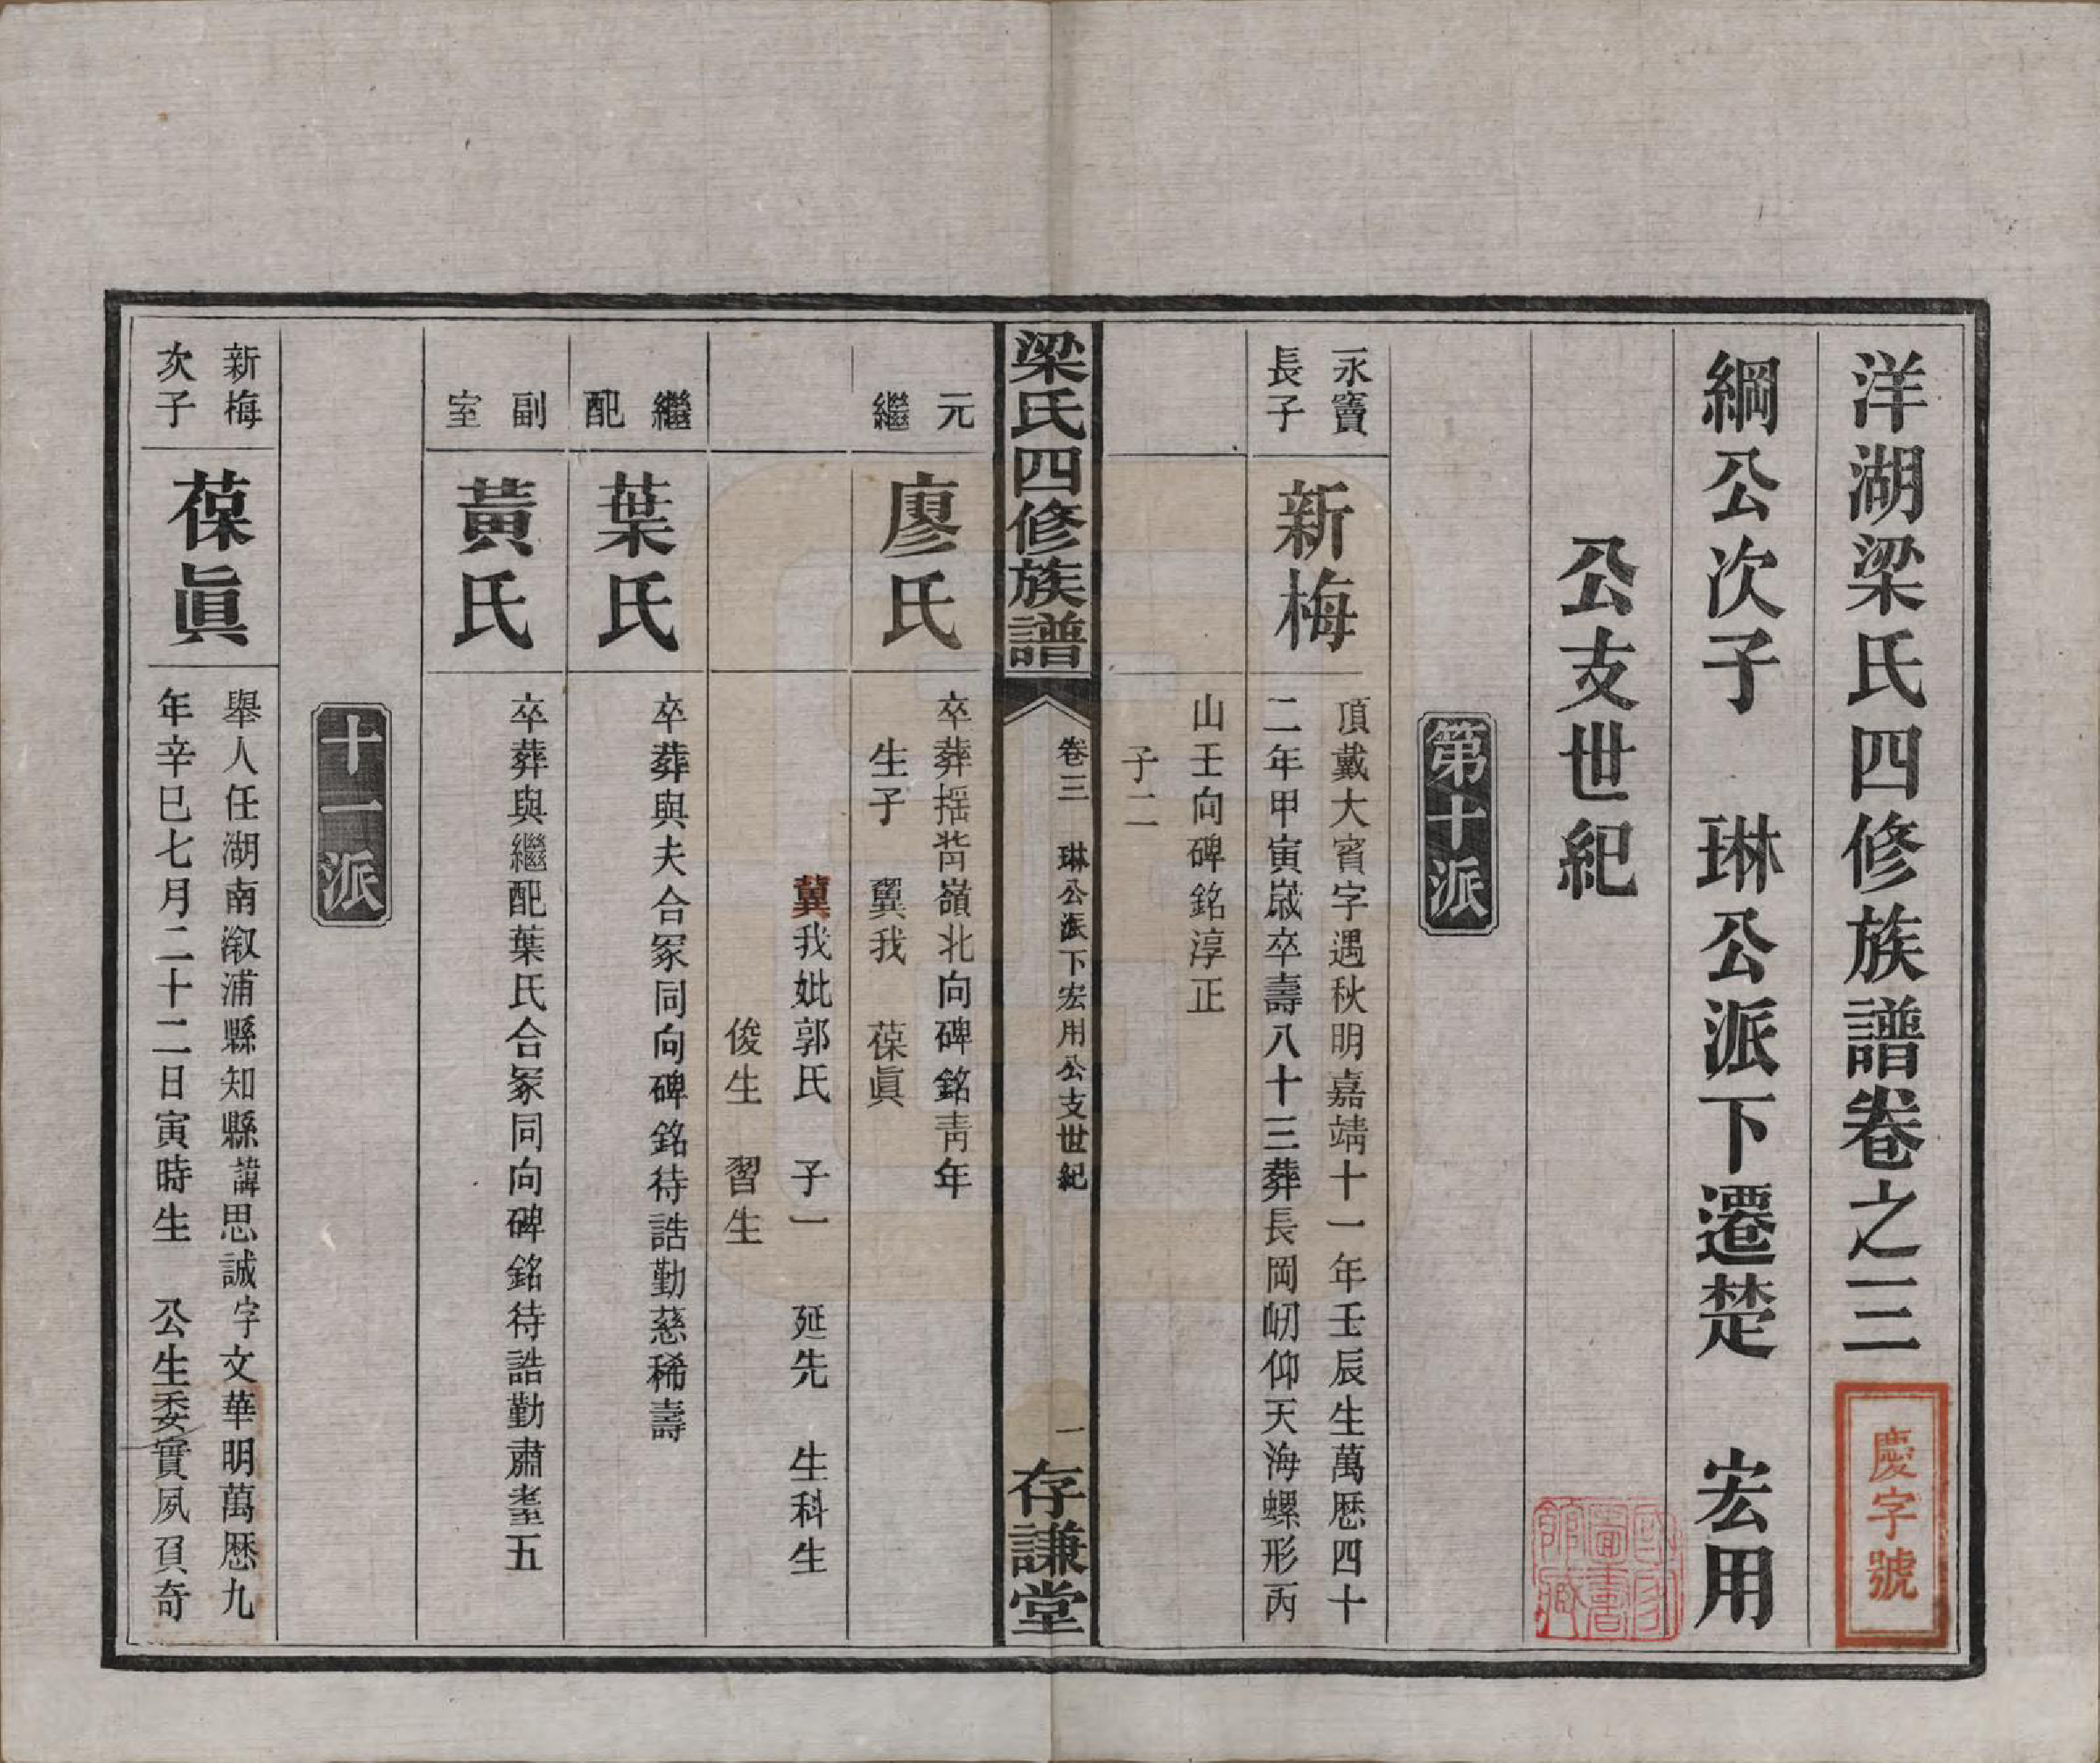 洋湖梁氏四修族譜卷之三
慶字號
綱公次子　琳公派下遷楚　宏用
公支世紀
國家圖書館藏
第十派
永寶
長子
新梅
頂戴大賓字遇秋明嘉靖十一年壬辰生萬歷四十
二年甲寅歲卒壽八十三葬長岡㘭仰天海螺形丙
山壬向碑銘淳正
子二
梁氏四修族譜
卷三　琳公派下宏用公支世紀
一
存謙堂
元
繼
廖氏
卒葬搖嶺北向碑銘靑年
生子　翼我　葆眞
冀我妣郭氏　子一　延先　生科生
俊生　習生
繼
配
葉氏
卒葬與夫合冢同向碑銘待誥勤慈稀壽
副
室
黃氏
卒葬與繼配葉氏合冢同向碑銘待誥勤肅耋五
十一派
新梅
次子
葆眞
舉人任湖南溆浦縣知縣諱思誠字文華明萬歷九
年辛巳七月二十二日寅時生　公生委實夙負奇